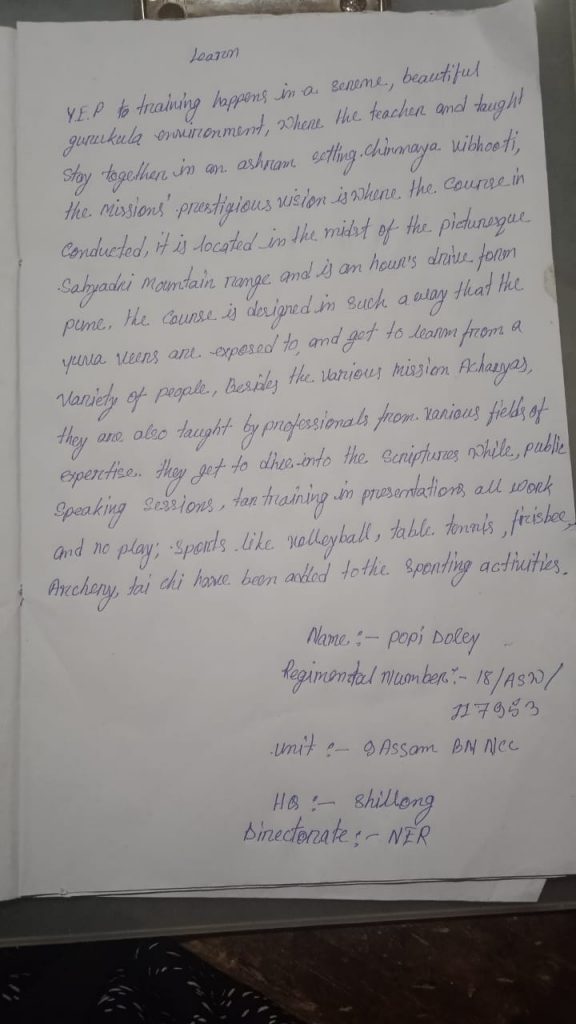 Learn
Y.E.P to training happens in a serene, beautiful
gurukula environment, where the teacher and taught
Stay together in an ashram setting. Chinmaya vibhooti,
the Missions' prestigious vision is where the course in
conducted, it is located in the midst of the picturesque
Sahyadri Mountain range and is an hour's drive form
pune. the course is designed in such a way that the
yuva veers are exposed to, and get to learn from a
variety of people, Besides the various mission Acharyas,
they are also taught by professionals from various fields of
expertise. they get to dive into the scriptures while, public
speaking sessions, training in presentations all work
and no play; sports like volleyball, table tennis, frisbee,
Archery, tai chi have been added to the sporting activities.
Name :- popi Doley
Regimental Number :- 18/ASW/
117953
unit :- 9 Assam BN NCC
HQ :- Shillong
Directorate :- NER